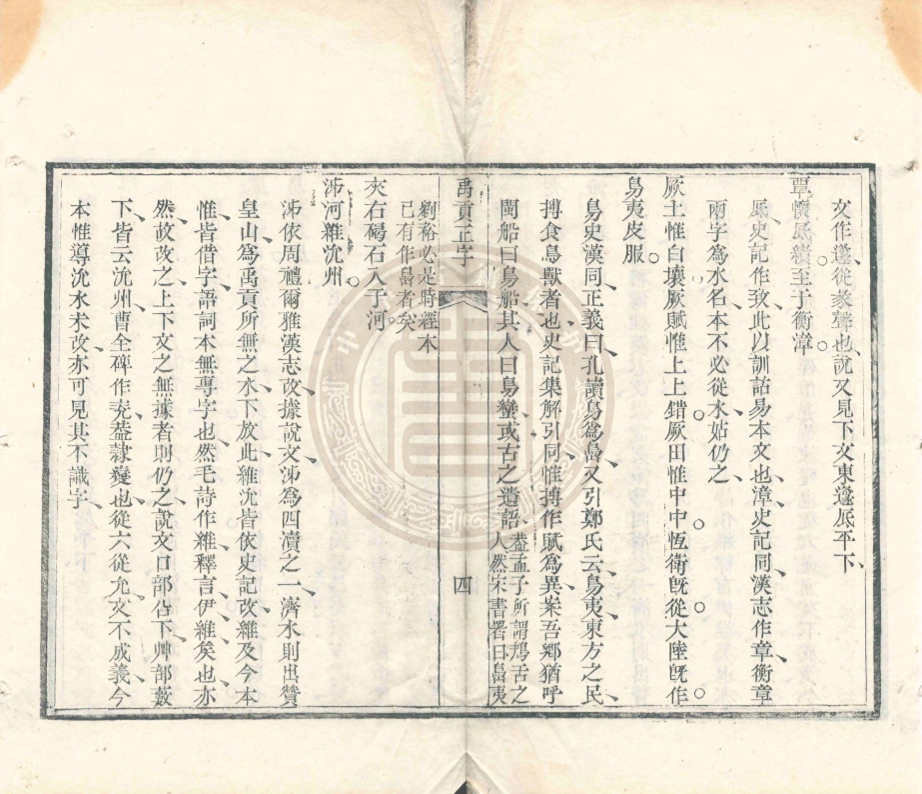 作邍從彖聲也說又見下文東邍厎平下
覃懷厎績至于衡漳
厎史記作致此以訓詁易本文也漳史記同漢志作章衡章
兩字爲水名本不必從水姑仍之
厥土惟白壤厥賦惟上上錯厥田惟中中恆衛旣從大陸旣作
鳥夷皮服
鳥史漢同正義曰孔讀鳥爲島又引鄭氏云鳥夷東方之民
搏食鳥獸者也史記集解引同惟搏作賦爲異案吾鄉猶呼
閩船曰鳥船其人曰鳥蠻或古之遺語
葢孟子所謂鴃舌之
人然宋書署曰島夷
禹貢正字
四
劉裕必是時經本
已有作島者矣
夾右碣石入于河
泲河維沇州
泲依周禮爾雅漢志改據說文泲爲四瀆之一濟水則出贊
皇山爲禹貢所無之水下放此維沇皆依史記改維及今本
惟皆借字語詞本無專字也然毛詩作維釋言伊維矣也亦
然故改之上下文之無據者則仍之說文口部㕣下艸部藪
下皆云沇州曹全碑作兖葢隸變也從六從允文不成義今
本惟導沇水未改亦可見其不識字